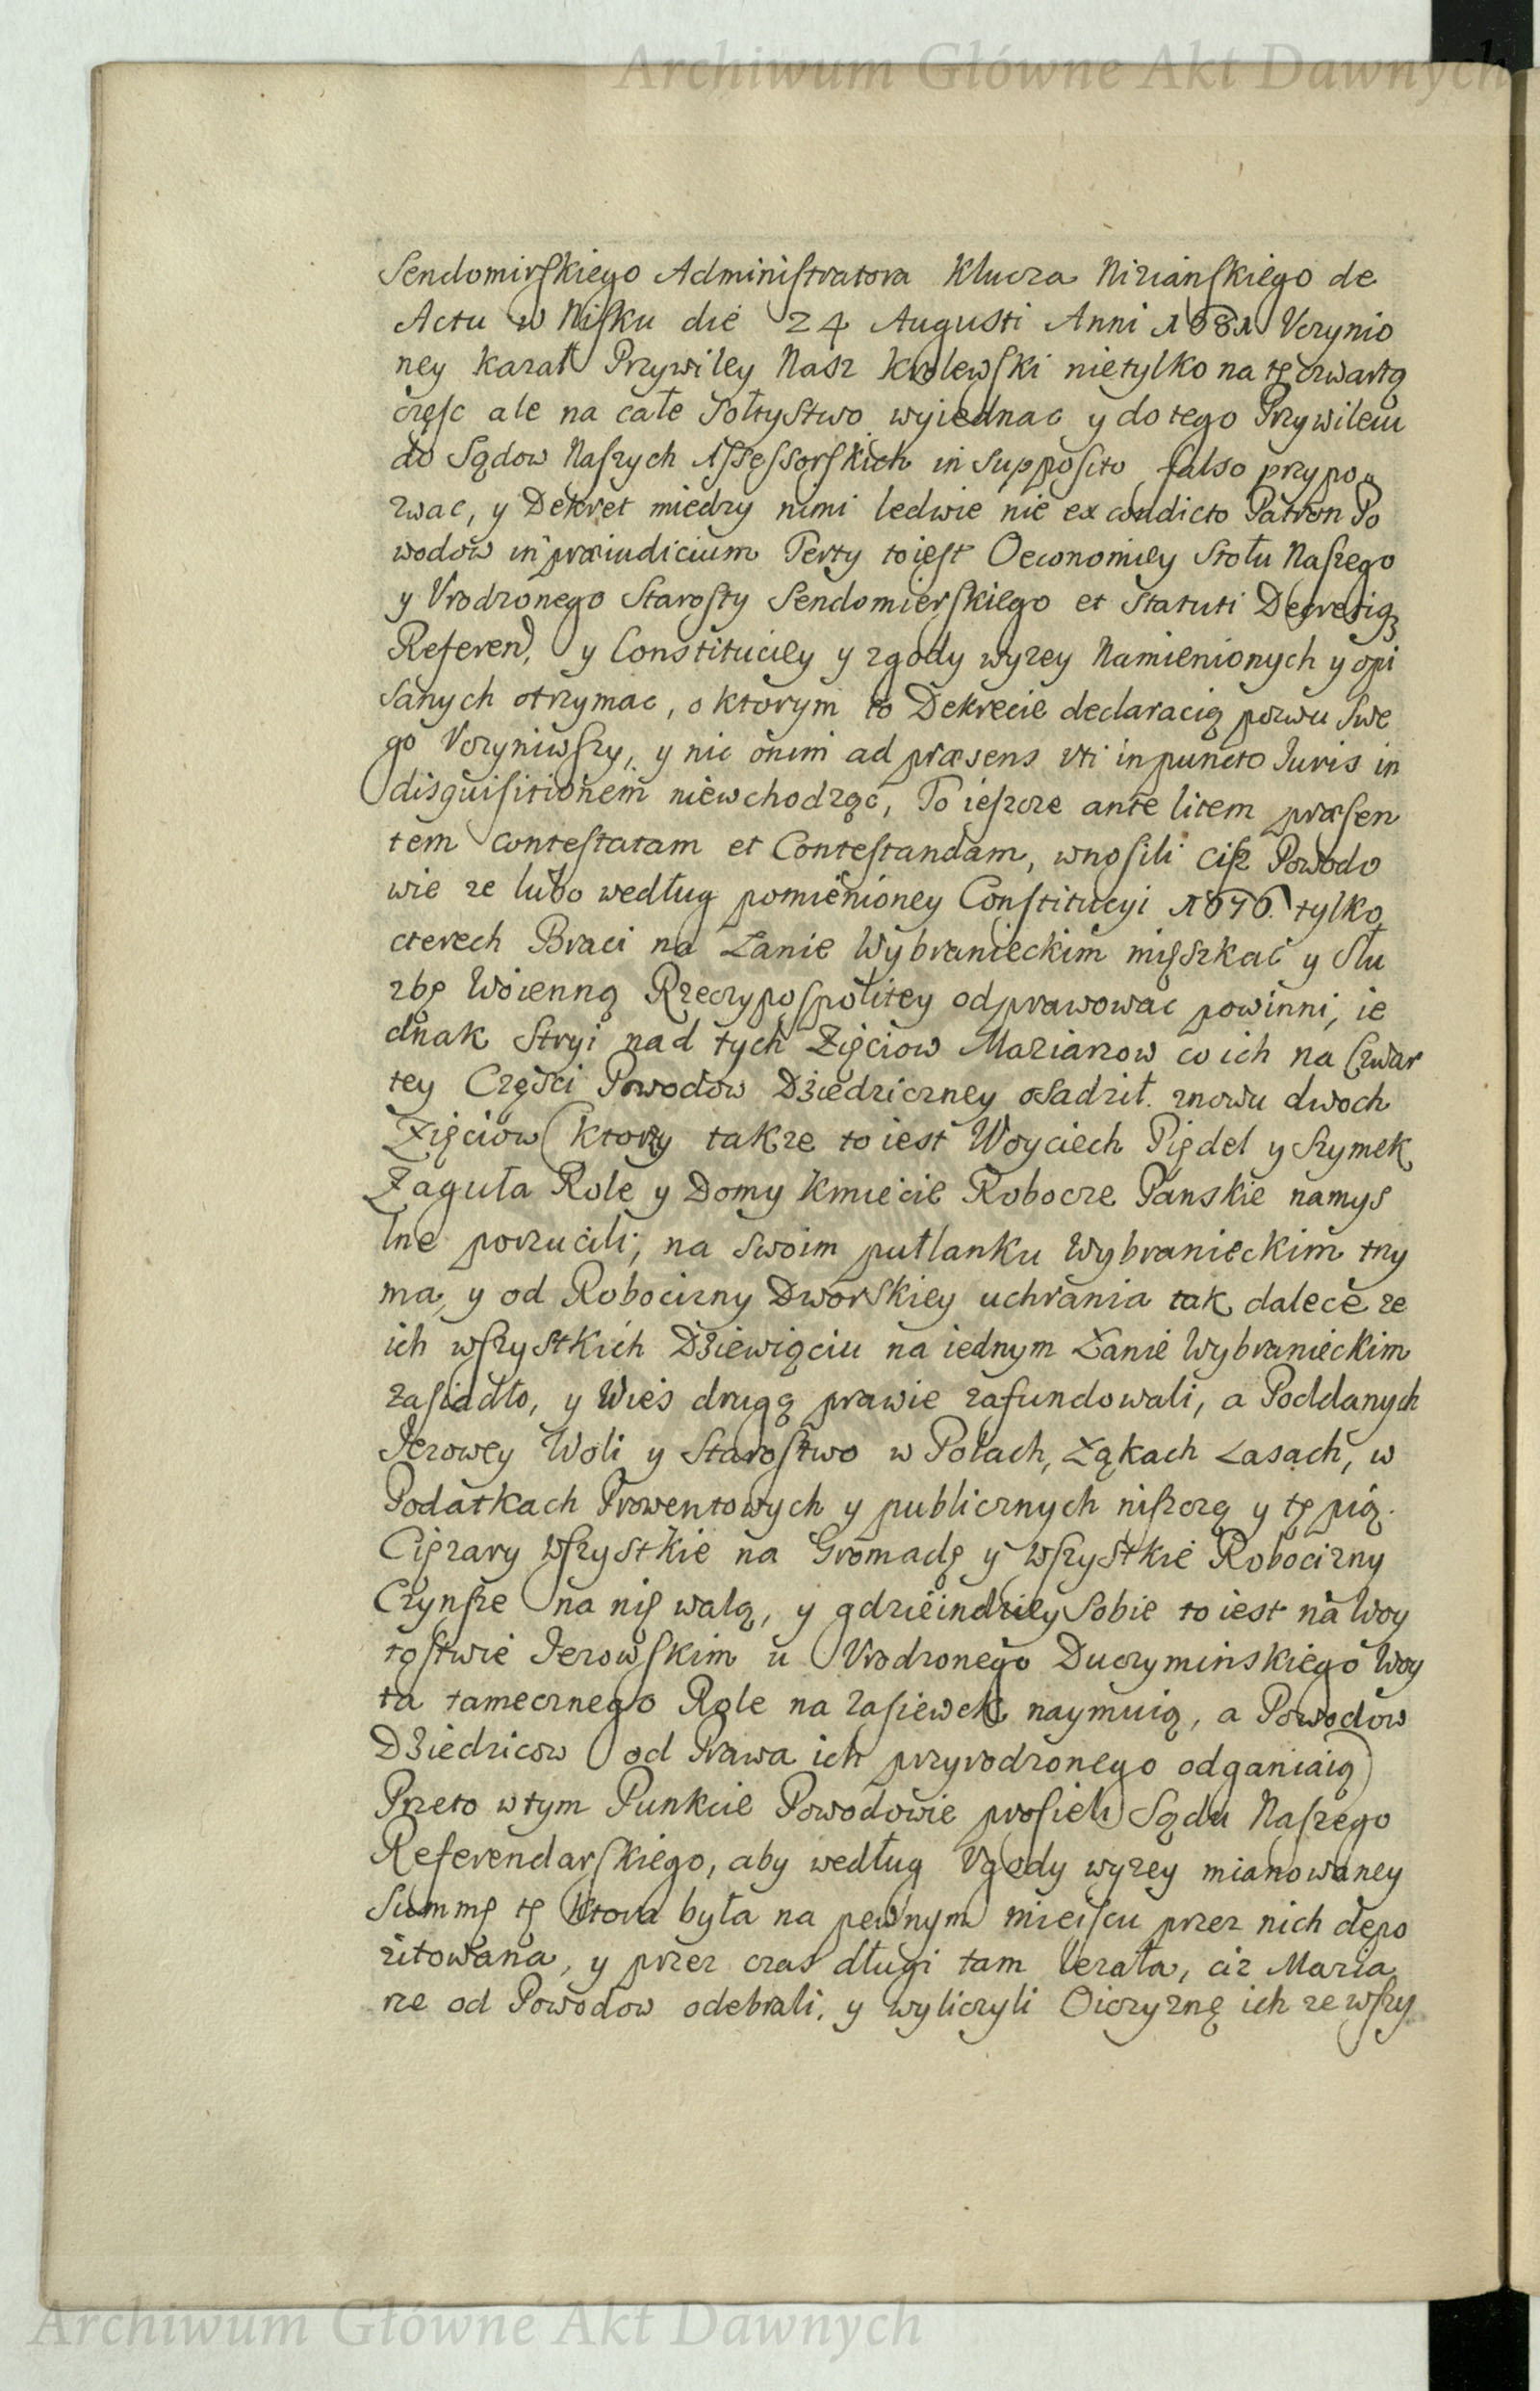 Archiwum Główne Akt Dawnych
Sendomirskiego Administratora Klucza Niziańskiego de
Actu w Nisku die 24 Augusti Anni 1681 Vczynio
ney kazał Przywiley Nasz Krolewski nietylko na tę czwartą
częsc ale na całe Sołtystwo wyiednac y do tego Przywileiu
do Sądow Naszych Assessorskich in supposito falso przypo
zwac, y Dekret miedzy nimi ledwie nie ex condicto Patron Po
wodow in præiudicium Terty to iest Oeconomiey Stołu Naszego
y Vrodzonego Starosty Sendomierskiego et Statuti Decretiq3
Referend, y Constituciey y zgody wyzey Namienionych y opi
sanych otrzymac, o ktorym to Dekrecie declaracią pozwu Swe
go Vczyniwszy, y nic onim ad præsens vti in puncto Iuris in
disquisitionem niewchodząc, To ieszcze ante litem præsen
tem contestatam et Contestandam, wnosili cisz Powodo
wie ze lubo według pomienioney Constitucyi 1676. tylko
cterech Braci na Łanie Wybranieckim mięszkać y Słu
zbę Woienną Rzeczypospolitey odprawowac powinni, ie
dnak Stryi nad tych Zięciow Maziarzow co ich na Czwar
tey Części Powodow Dziedziczney osadził. znowu dwoch
Zięciow (ktorzy takze to iest Woyciech Piędel y Szymek
Zaguła Role y Domy Kmiecie Robocze Panskie namyś
lne porzucili, na swoim pułłanku Wybranieckim trzy
ma, y od Robocizny Dworskiey uchrania tak dalece ze
ich wszystkich Dziewięciu na iednym Łanie Wybranieckim
zasiadło, y Wieś drugą prawie zafundowali, a Poddanych
Jezowey Woli y Starostwo w Polach, Łąkach Lasach, w
Podatkach Prowentowych y publicznych niszczą y tępią.
Cięzary wszystkie na Gromadę y wszystkie Robocizny
Czynsze na nię walą, y gdzieindziey Sobie to iest na Woy
tostwie Jezowskim u Vrodzonego Duczyminskiego Woy
ta tamecznego Role na zasiewek naymuią, a Powodow
Dziedzicow od Prawa ich przyrodzonego odganiaią)
Przeto w tym Punkcie Powodowie prosieli Sądu Naszego
Referendarskiego, aby według Vgody wyzey mianowaney
Summę tę ktora była na pewnym mieiscu przez nich depo
zitowana, y przez czas długi tam lezała, ciz Mazia
rze od Powodow odebrali, y wyliczyli Oiczyznę ich ze wszy
Archiwum Główne Akt Dawnych